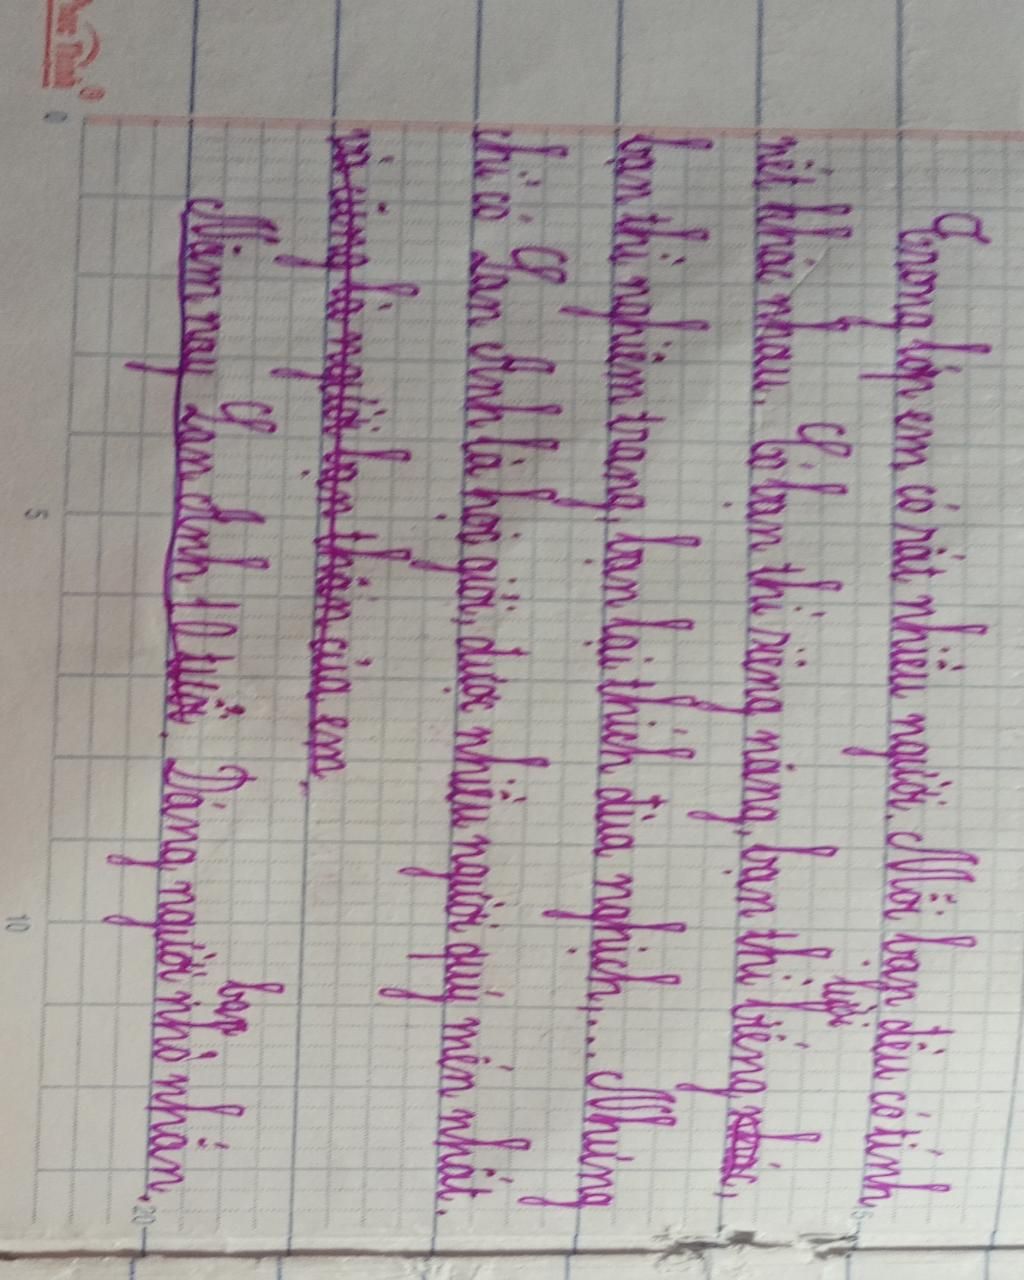 Trong lớp em có rất nhiều người. Mỗi bạn đều có tính
nết khác nhau. Có bạn thì siêng năng, bạn thì biếng
lười
bạn thì nghiêm trang, bạn lại thích đùa nghịch,... Nhưng
chỉ có Lan Anh là học giỏi, được nhiều người quý mến nhất.
và cũng là người bạn thân của em.
Năm nay Lan Anh 10 tuổi. Dáng người nhỏ nhắn,
bạn
Phúc Thịnh
0
5
10
5
20